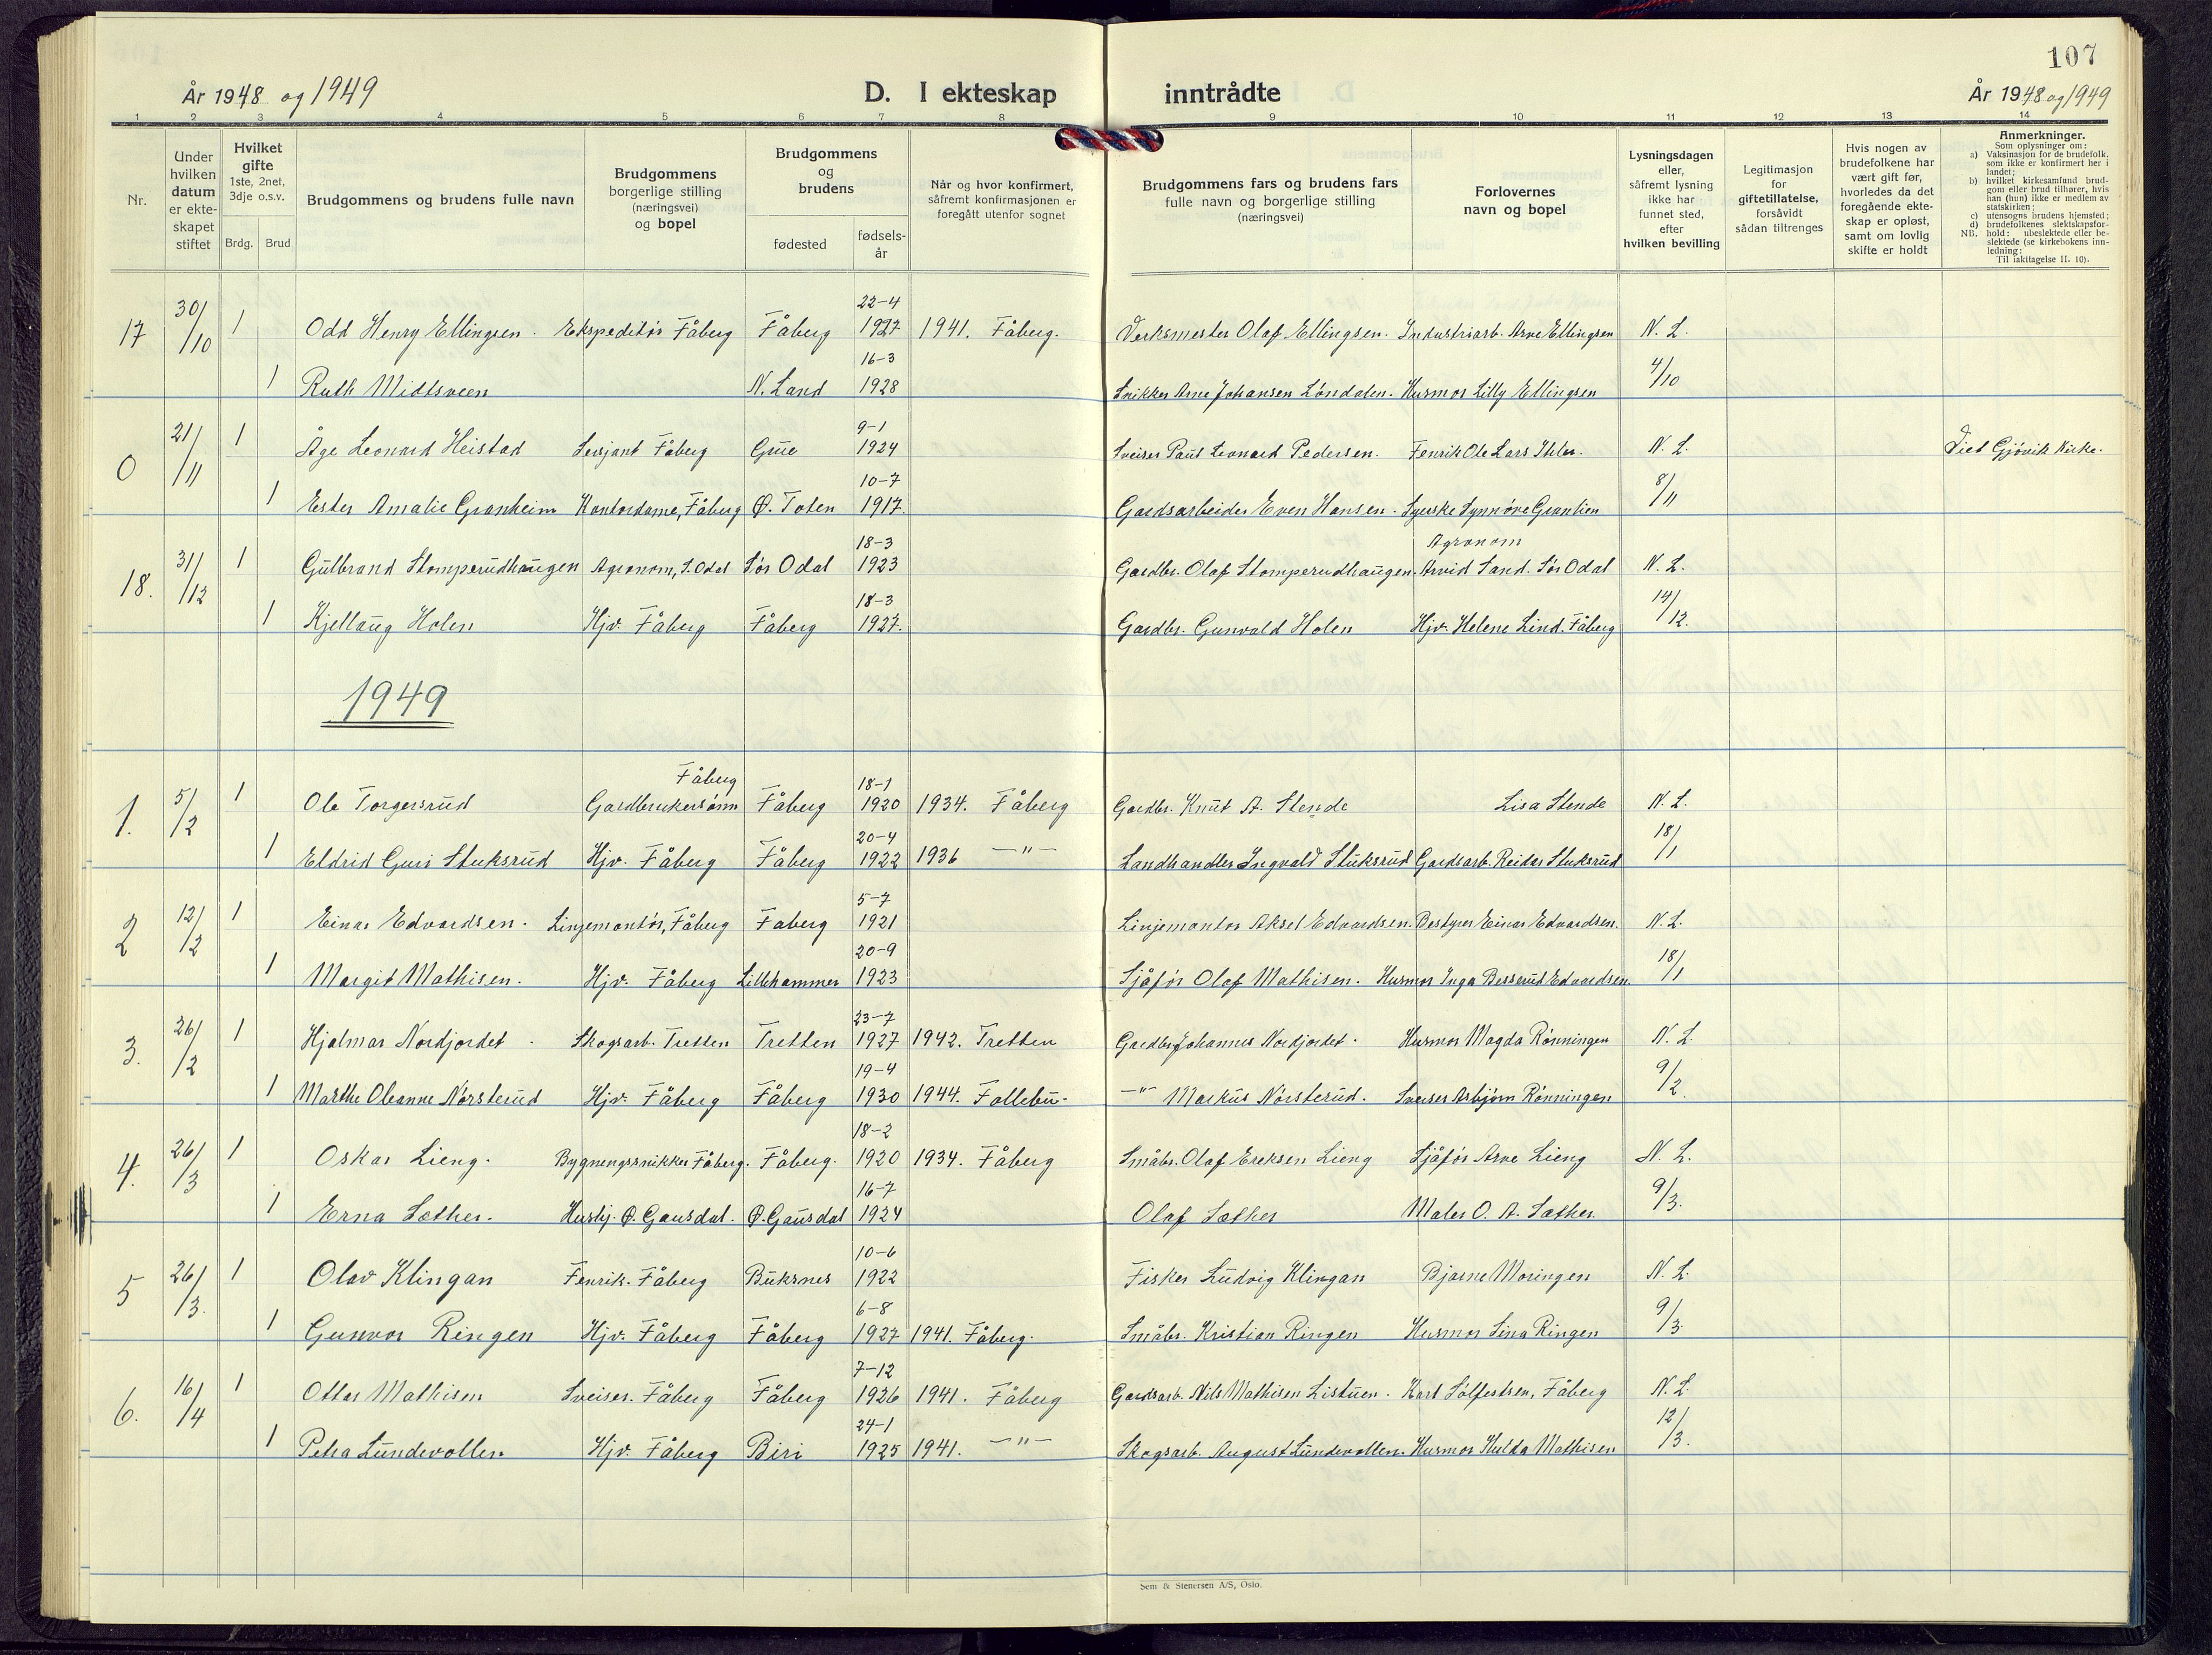 107
År 1948 og 1949 D. I ekteskap inntrådte År 1948 og 1949
1 2 3 4 5 6 7 8 9 10 11 12 13 14
Nr.
Under hvilken datum er ekte-skapet stiftet
Hvilket gifte 1ste, 2net, 3dje o.s.v.
Brdg. Brud
Brudgommens og brudens fulle navn
Brudgommens borgerlige stilling (næringsvei) og bopel
Brudgommens og brudens
fødested fødsels-år
Når og hvor konfirmert, såfremt konfirmasjonen er foregått utenfor sognet
Brudgommens fars og brudens fars fulle navn og borgerlige stilling (næringsvei)
Forlovernes navn og bopel
Lysningsdagen eller, såfremt lysning ikke har funnet sted, efter hvilken bevilling
Legitimasjon for giftetillatelse, forsåvidt sådan tiltrenges
Hvis nogen av brudefolkene har vært gift før, hvorledes da det foregående ekte-skap er opløst, samt om lovlig skifte er holdt
Anmerkninger.
Som oplysninger om:
a) Vaksinasjon for de brudefolk. som ikke er konfirmert her i landet;
b) hvilket kirkesamfund brud-gom eller brud tilhører, hvis han (hun) ikke er medlem av statskirken;
c) utensogns brudens hjemsted;
d) brudefolkenes slektskapsfor-hold: ubeslektede eller be-slektede (se kirkebokens inn-ledning:
NB.
Til iakttagelse II. 10).
17 30/10 1 Odd Henry Ellingsen. Ekspeditør Fåberg Fåberg 22-4 1927 1941. Fåberg. Verksmester Olaf Ellingsen. Industriarb. Arne Ellingsen N. L.
1 Ruth Midtsveen N. Land 16-3 1928 Snikker Arne Johansen Løndalen. Husmor Lilly Ellingsen 4/10
0 21/11 1 Åge Leonard Heistad Sersjant Fåberg Grue 9-1 1924 Sveiser Paul Leonard Pedersen. Fenrik Ole Lars N. L. Viet Gjøvik Kirke.
1 Ester Amalie Granheim Kontordame, Fåberg Ø. Toten 10-7 1917. Gardsarbeider Even Hansen. Synnøve Granlien 8/11
18. 31/12 1 Gulbrand Stomperudhaugen Agronom, S. Odal Sør Odal 18-3 1923 Gardbr. Olaf Stomperudhaugen. Agronom Arvid Sand. Sør Odal N. L.
1 Kjellaug Holen Hjv. Fåberg Fåberg 18-3 1927. Gardbr. Gunvald Holen Hjv. Helene Lind. Fåberg 14/12.
1949
1. 5/2 1 Ole Torgersrud Gardbrukersønn Fåberg Fåberg 18-1 1920 1934. Fåberg Gardbr. Knut A. Stende Lisa Stende N. L.
1 Eldrid Guri Stuksrud Hjv. Fåberg Fåberg 20-4 1922 1936 —"— Landhandler Ingvald Stuksrud Gardsarb. Reidar Stuksrud 18/1
2 12/2 1 Einar Edvardsen. Linjemontør, Fåberg Faberg 5-7 1921 Linjemontør Aksel Edvardsen. Bestyrer Einar Edvardsen. N. L.
1 Margit Mathisen. Hjv. Fåberg Lillehammer 20-9 1923 Sjåfør Olaf Mathisen. Husmor Inga Edvardsen. 18/1
3. 26/2 1 Hjalmar Nordjordet. Skogsarb. Tretten Tretten 23-7 1927 1942. Tretten Gardbr. Johannes Nordjordet. Husmor Magda Rønningen N. L.
1 Marthe Oleanne Nørsterud Hjv. Fåberg Fåberg 19-4 1930 1944. Follebu. —"— Markus Nørsterud. Sveiser Asbjørn Rønningen 9/2.
4. 26/3 1 Oskar Lieng. Bygnengssnikker Fåberg. Fåberg. 18-2 1920 1934. Fåberg Småbr. Olaf Ereksen Lieng Sjåfør Arne Lieng N. L.
1 Erna Sæther. Hushj. Ø. Gausdal. Ø. Gausdal 16-7 1924 Olaf Sæther Maler O. A. Sæther. 9/3.
5 26/3. 1 Olav Klingan Fenrik. Fåberg Buksnes 10-6 1922 Fisker Ludvig Klingan Bjarne Moringen N. L.
1 Gunvor Ringen Hjv. Fåberg Fåberg 6-8 1927 1941. Fåberg. Småbr. Kristian Ringen Husmor Lina Ringen 9/3.
6. 16/4 1 Ottar Mathisen Sveiser. Fåberg Fåberg 7-12 1926 1941. Fåberg Gardsarb. Nils Mathisen Listuen. Karl Solfestsen, Fåberg N. L.
1 Petra Lundevollen Hjv. Fåberg Biri 24-1 1925 1941. —"— Skogsarb. August Lundevollen. Husmor Hulda Mathisen 12/3.
Sem & Stenersen A/S, Oslo.